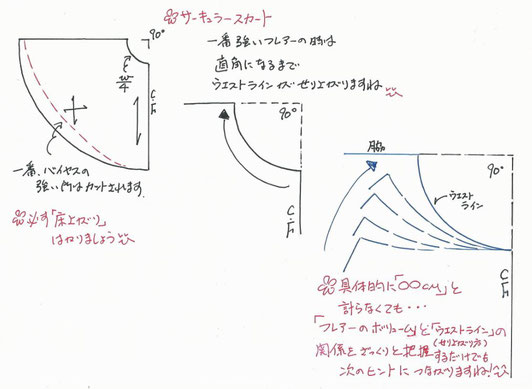 サーキュラースカート
一番強いフレアーの時は
直角になるまで
ウエストラインがせり上がりますね
90°
W/4
C・F
一番、バイヤスの
強い所はカットされます。
必ず「床上がり」
はかりましょう
90°
C・F
脇
90°
ウエスト
ライン
C・F
具体的に「〇〇cm」と
計らなくても・・・
「フレアーのボリューム」と「ウエストライン」の
(せり上がり方)
関係をざっくりと把握するだけでも
次のヒントにつながりますね!